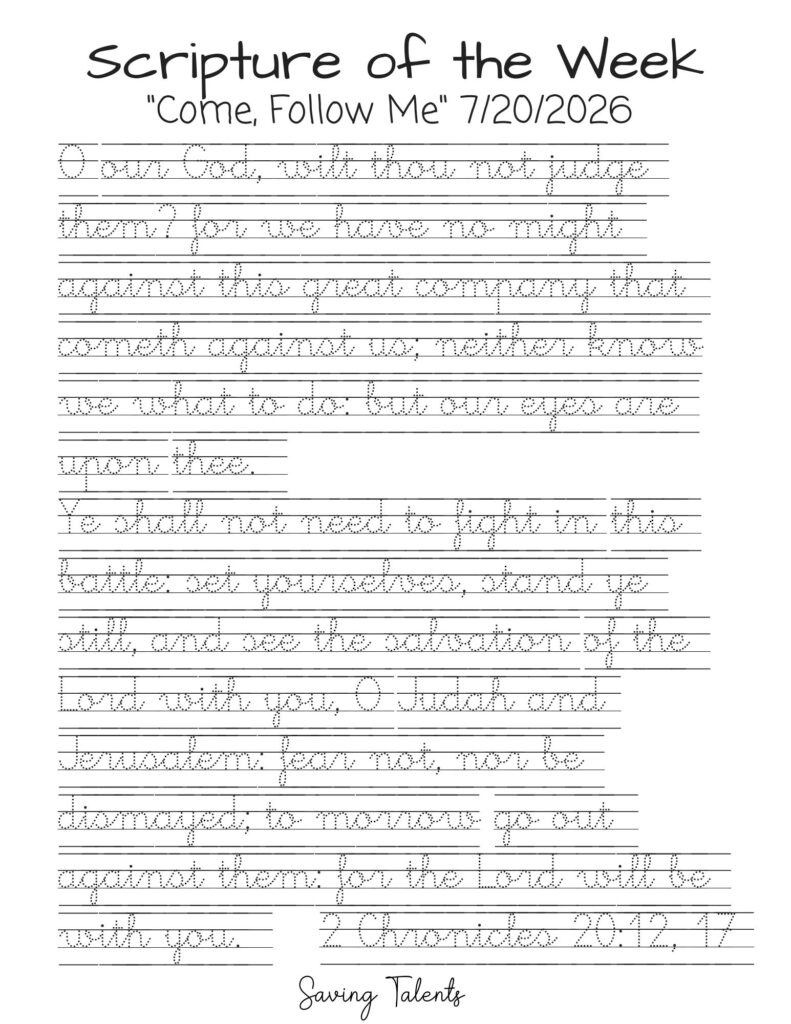 Scripture of the Week
"Come, Follow Me" 7/20/2026
O our God, wilt thou not judge
them? for we have no might
against this great company that
cometh against us; neither know
we what to do: but our eyes are
upon thee.
Ye shall not need to fight in this
battle: set yourselves, stand ye
still, and see the salvation of the
Lord with you, O Judah and
Jerusalem: fear not, nor be
dismayed; to morrow go out
against them: for the Lord will be
with you. 2 Chronicles 20:12, 17
Saving Talents